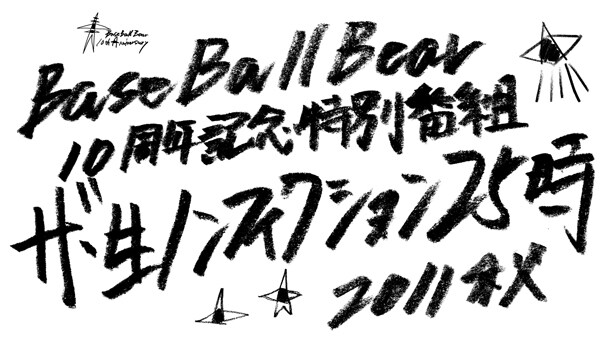 Base Ball Bear
10th Anniversary
Base Ball Bear
10周年記念・特別番組
ザ・生ノンフィクション25時
2011秋